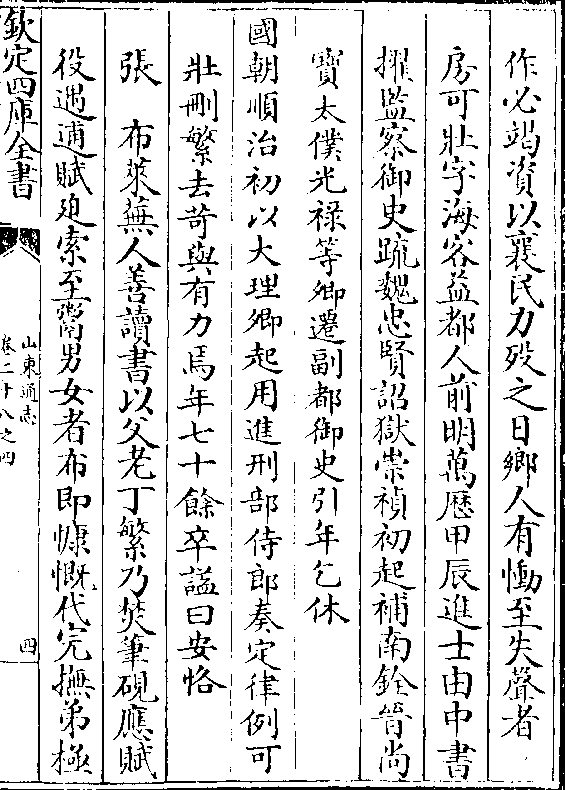 作必竭資以襄民力歿之日鄉人有慟至失聲者
房可壯字海客益都人前明萬歷甲辰進士由中書
擢監察御史疏魏忠賢詔獄崇禎初起補南銓晉尚
寶太僕光祿等卿遷副都御史引年乞休
國朝順治初以大理卿起用進刑部侍郎奏定律例可
壯刪繁去苛與有力焉年七十餘卒諡曰安恪
張　布萊蕪人善讀書以父老丁繁乃焚筆硯應賦
役遇逋賦廹索至鬻男女者布即慷慨代完撫弟極
欽定四庫全書
山東通志
卷二十八之四
四